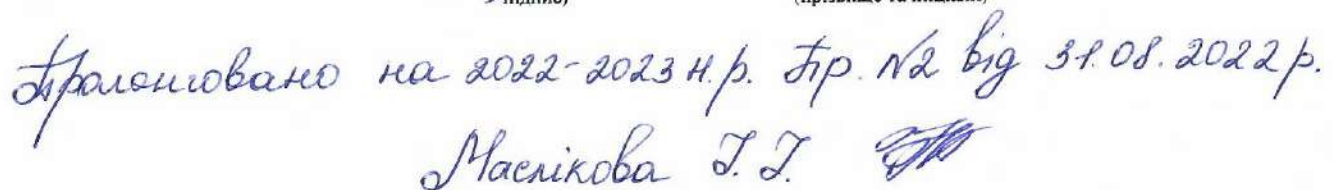 підпис) (прізвище та ініціали)
Пролонговано на 2022-2023 н.р. Пр. №2 від 31.08.2022р.
Маслікова І.І.